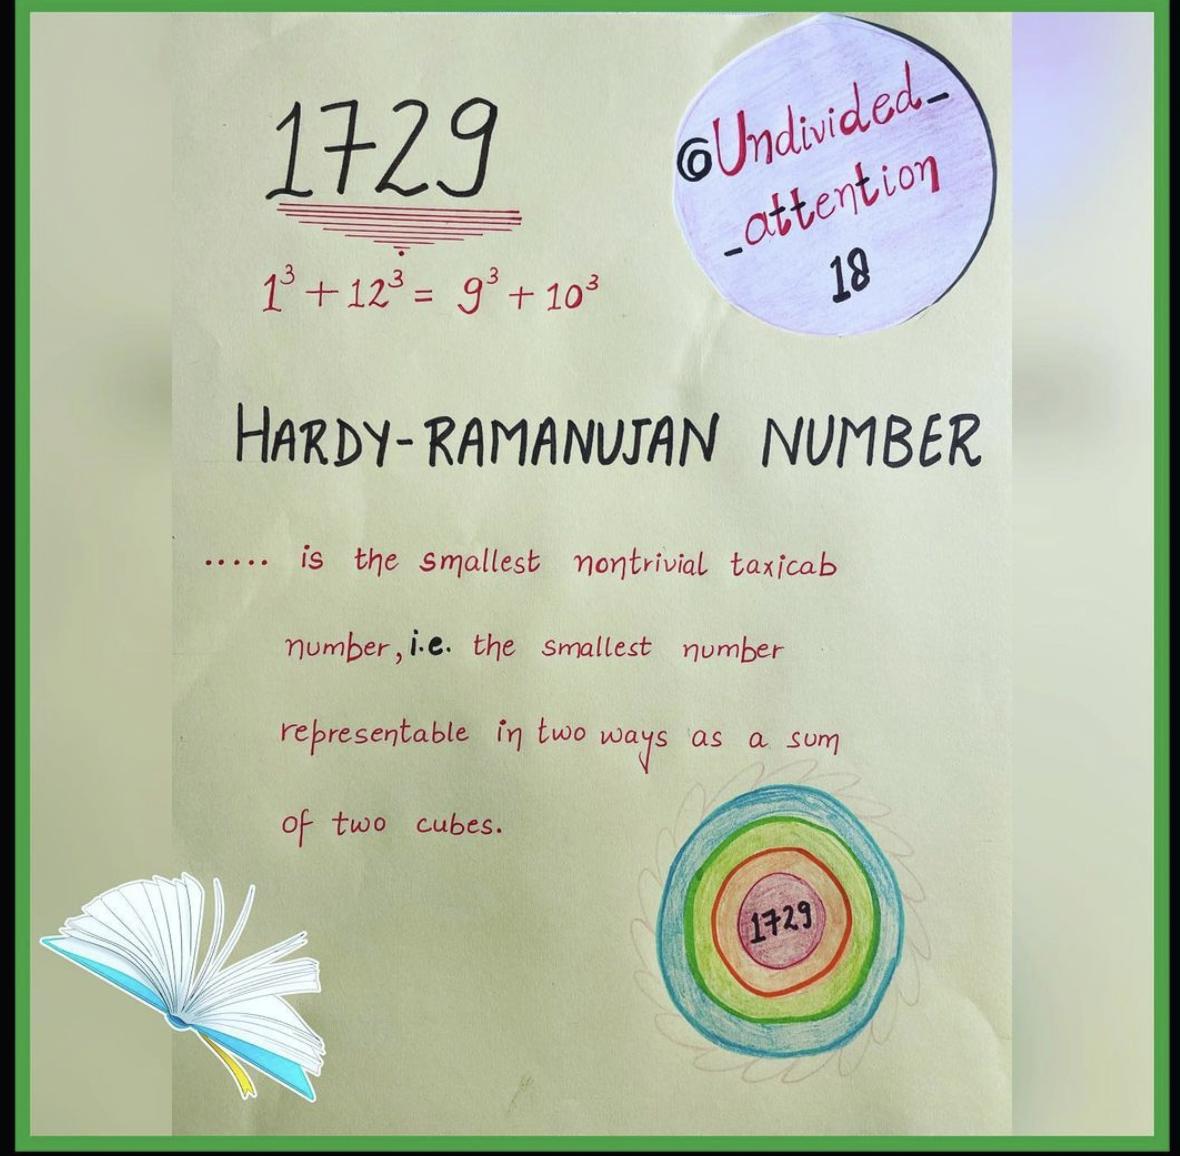 1729
1³ + 12³ = 9³ + 10³
@Undivided_
_attention
18
HARDY-RAMANUJAN NUMBER
..... is the smallest nontrivial taxicab
number, i.e. the smallest number
representable in two ways as a sum
of two cubes.
1729